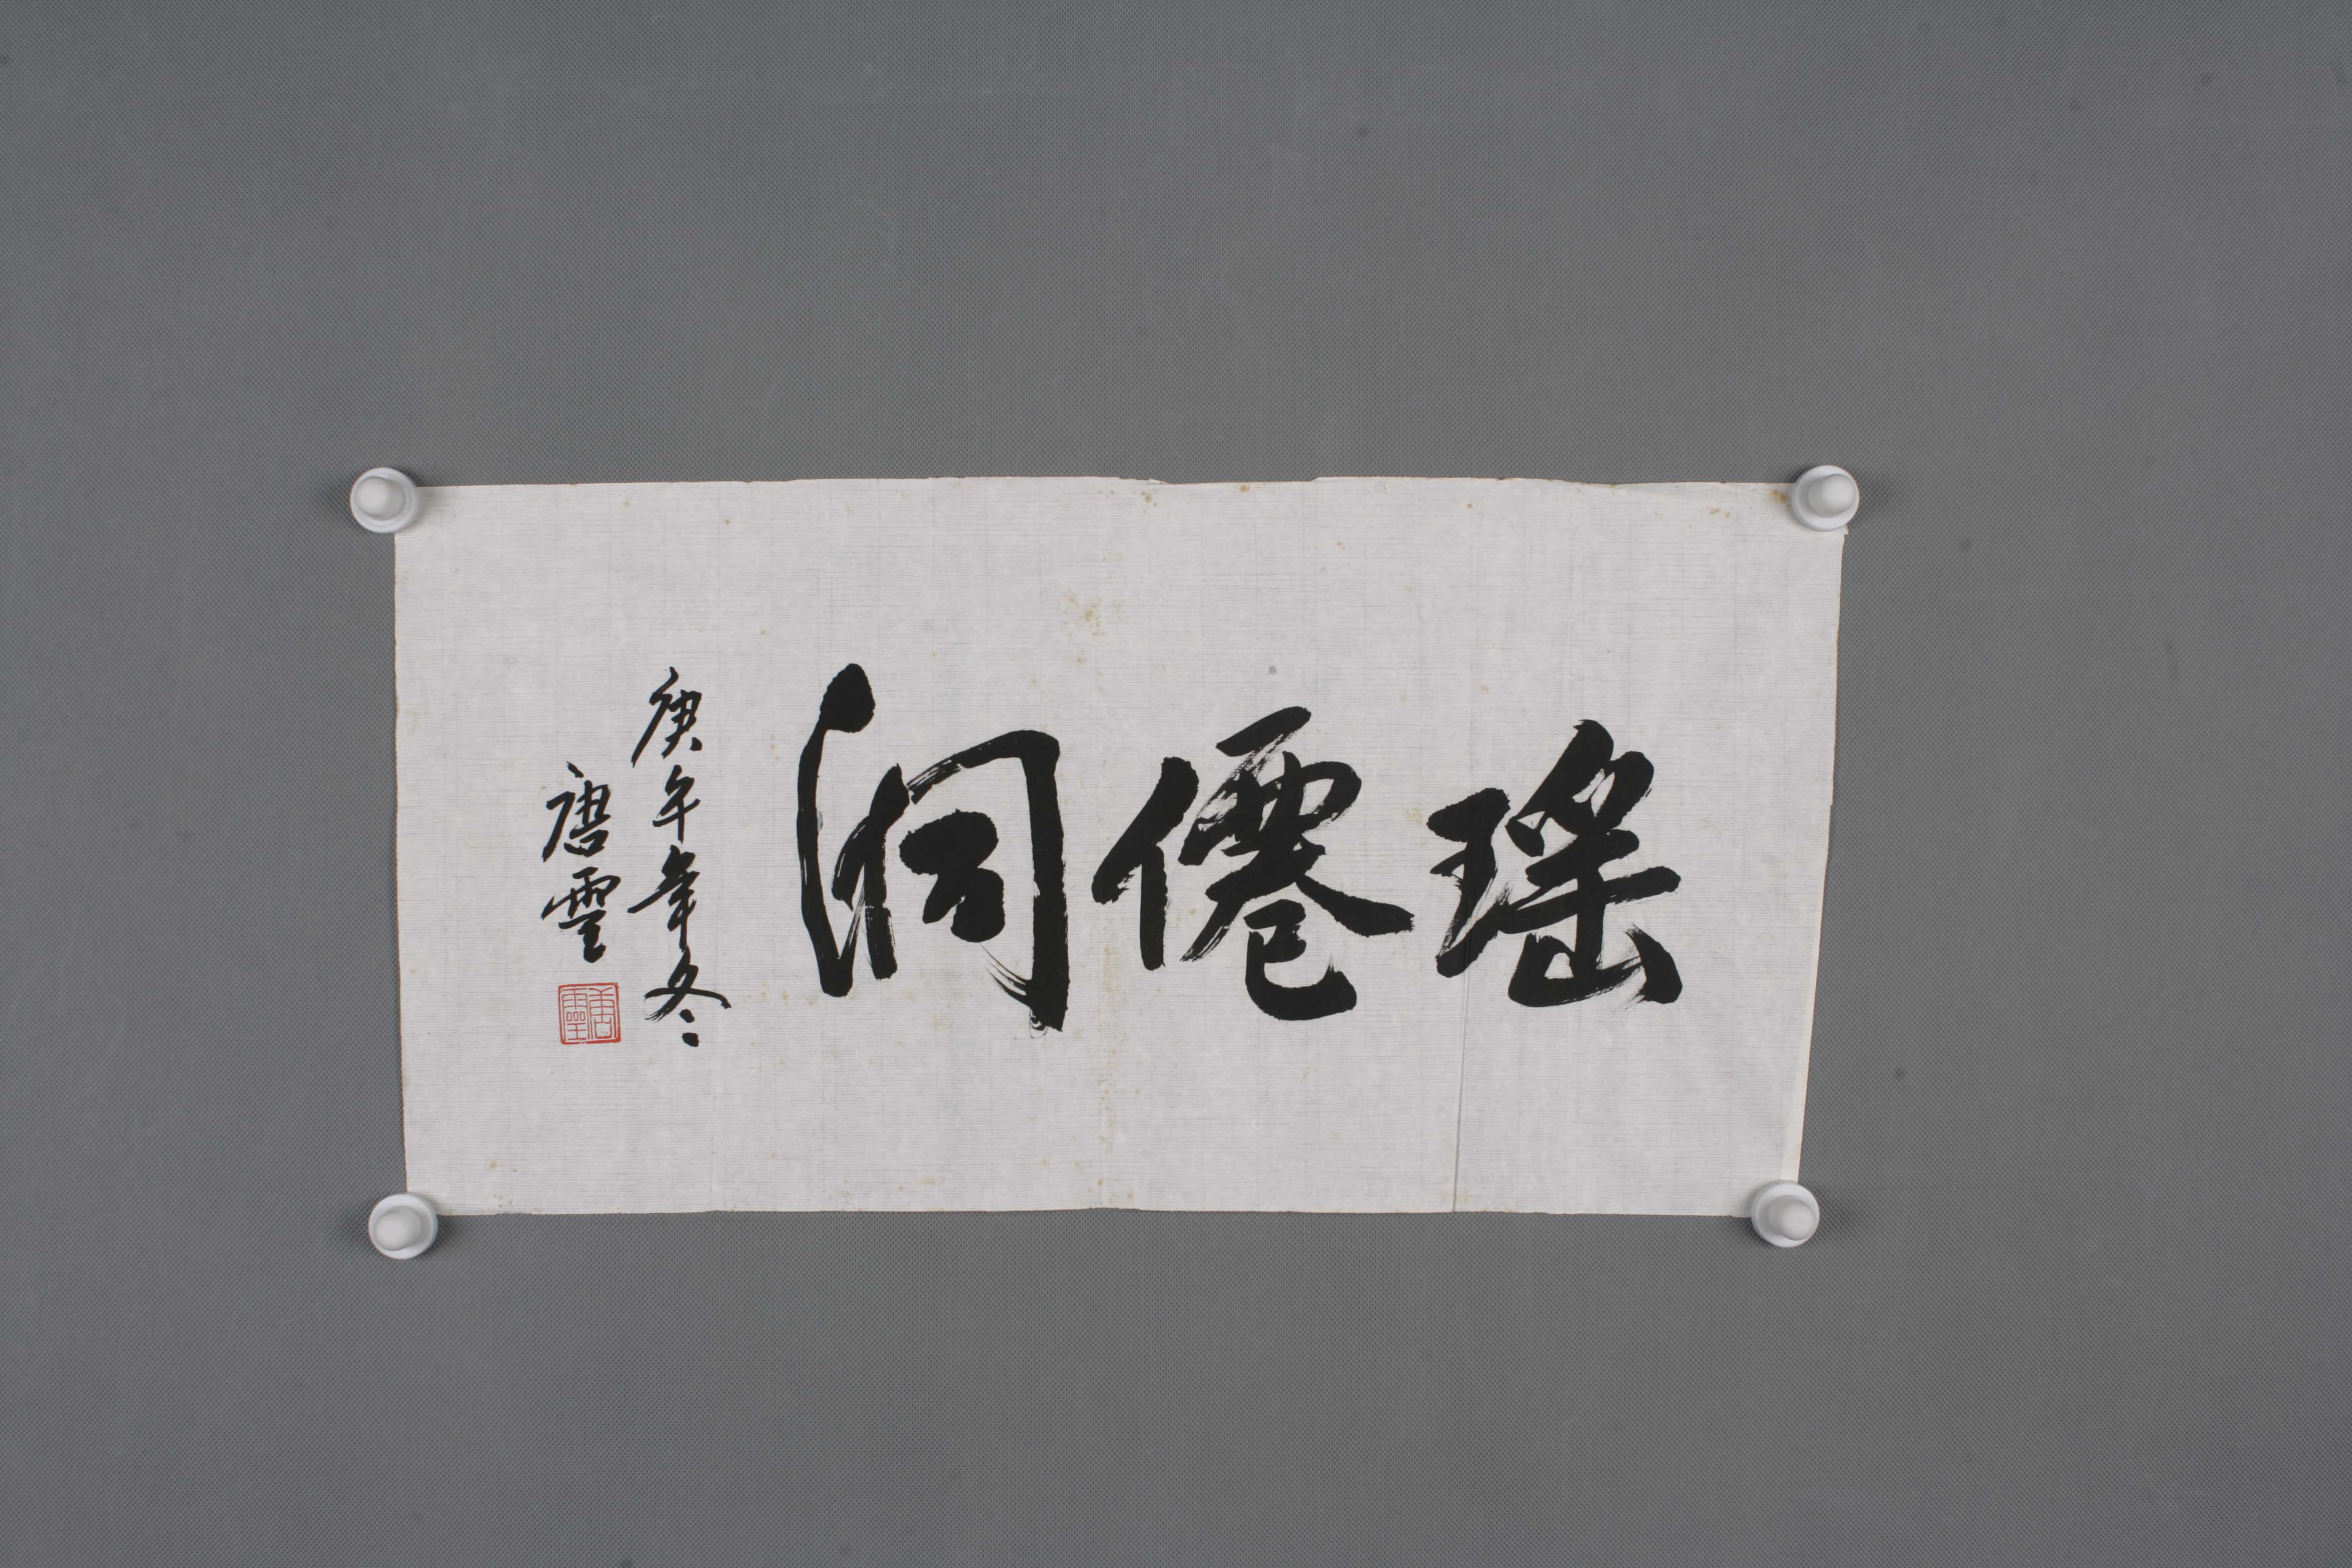 瑶僊洞
庚午年冬
唐雲
唐雲